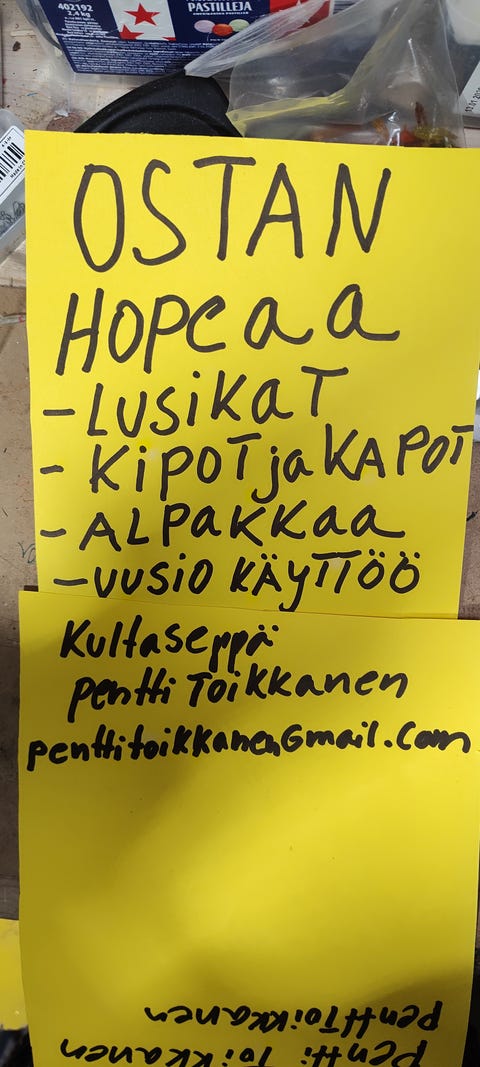 402192
2,4 kg
PASTILLEJA
AMERIKANSKA PASTILLER
OSTAN
HOPEAA
-LUSIKAT
-KIPOT ja KAPOT
-ALPAKKAA
-UUSIO KÄYTTÖÖ
Kultaseppä
Pentti Toikkanen
penttitoikkanen@Gmail.Com
pentToikkanen
pentti Toikkanen